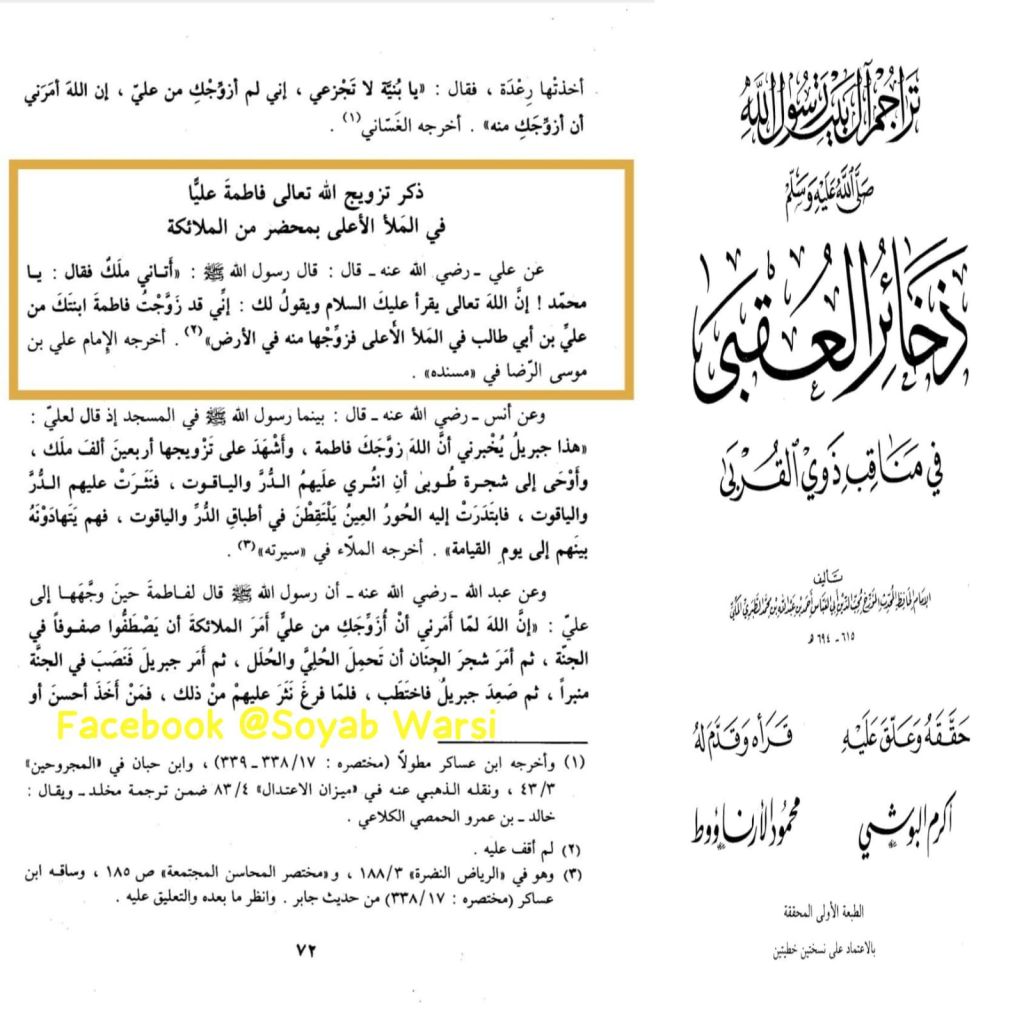 أخذتْها رِعْدَة ، فقال : «يا بُنَيَّة لا تَجْزعي ، إني لم أزوِّجْكِ من عليّ ، إن اللهَ أمَرَني
أن أزوِّجَكِ منه» . أخرجه الغَسّاني(١) .
ذكر تزويج الله تعالى فاطمةَ عليًّا
في المَلأ الأعلى بمحضر من الملائكة
عن علي ـ رضي الله عنه ـ قال : قال رسول الله ﷺ : «أَتاني ملَكٌ فقال : يا
محمّد ! إنَّ اللهَ تعالى يقرأ عليكَ السلام ويقولُ لك : إنِّي قد زَوَّجْتُ فاطمةَ ابنتَكَ من
عليِّ بن أبي طالب في المَلأ الأَعلى فزوِّجْها منه في الأرض»(٢) . أخرجه الإمام علي بن
موسى الرِّضا في «مسنده» .
وعن أنس ـ رضي الله عنه ـ قال : بينما رسول الله ﷺ في المسجد إذ قال لعليّ :
«هذا جبريلُ يُخْبرني أنَّ اللهَ زوَّجَكَ فاطمة ، وأَشْهَدَ على تَزْويجها أربعينَ ألفَ ملَك ،
وأَوْحَى إلى شجرة طُوبىٰ أنِ انْثُري علَيهمُ الدُّرَّ والياقوت ، فنَثَرَتْ عليهم الدُّرَّ
والياقوت ، فابتدَرَتْ إليه الحُورُ العِينُ يَلْتَقِطْنَ في أطباقِ الدُّرِّ والياقوت ، فهم يَتَهادَوْنَهُ
بينَهم إلى يومِ القيامة» . أخرجه الملّاء في «سيرته»(٣) .
وعن عبد الله ـ رضي الله عنه ـ أن رسول الله ﷺ قال لفاطمةَ حينَ وجَّهَها إلى
عليّ : «إنَّ اللهَ لمّا أمَرني أنْ أُزَوِّجَكِ من عليٍّ أمَرَ الملائكةَ أن يَصْطَفُّوا صفوفاً في
الجنّة ، ثم أمَرَ شجرَ الجِنَان أن تَحمِلَ الحُلِيَّ والحُلَل ، ثم أمَر جبريلَ فَنَصَبَ في الجنَّة
منبراً ، ثم صَعِدَ جبريلُ فاختَطَب ، فلمّا فرغَ نَثَرَ عليهمْ منْ ذلك ، فمَنْ أخَذَ أحسنَ أو
Facebook @Soyab Warsi
(١) وأخرجه ابن عساكر مطولاً (مختصره : ١٧/ ٣٣٨ ـ ٣٣٩) ، وابن حبان في «المجروحين»
٣/ ٤٣ ، ونقله الذهبي عنه في «ميزان الاعتدال» ٤/ ٨٣ ضمن ترجمة مخلد ـ ويقال :
خالد ـ بن عمرو الحمصي الكلاعي .
(٢) لم أقف عليه .
(٣) وهو في «الرياض النضرة» ٣/ ١٨٨ ، و«مختصر المحاسن المجتمعة» ص ١٨٥ ، وساقه ابن
عساكر (مختصره : ١٧/ ٣٣٨) من حديث جابر . وانظر ما بعده والتعليق عليه .
٧٢
تَراجُم آل بَيْت رَسُول اللَّه
صَلَّى اللَّه عَلَيْهِ وَسَلَّم
ذَخَائِرُ العُقْبَى
في مَنَاقِب ذَوِي القُرْبَى
تأليف
الإمام الحافظ المحدث المؤرخ محب الدين أبي العباس أحمد بن عبد الله بن محمد الطبري المكي
٦١٥ - ٦٩٤ هـ
حَقَّقَهُ وَعَلَّقَ عَلَيْهِ
قَرَأَهُ وَقَدَّمَ لَهُ
أكرم البوشي
محمود الأرناؤوط
الطبعة الأولى المحققة
بالاعتماد على نسختين خطيتين